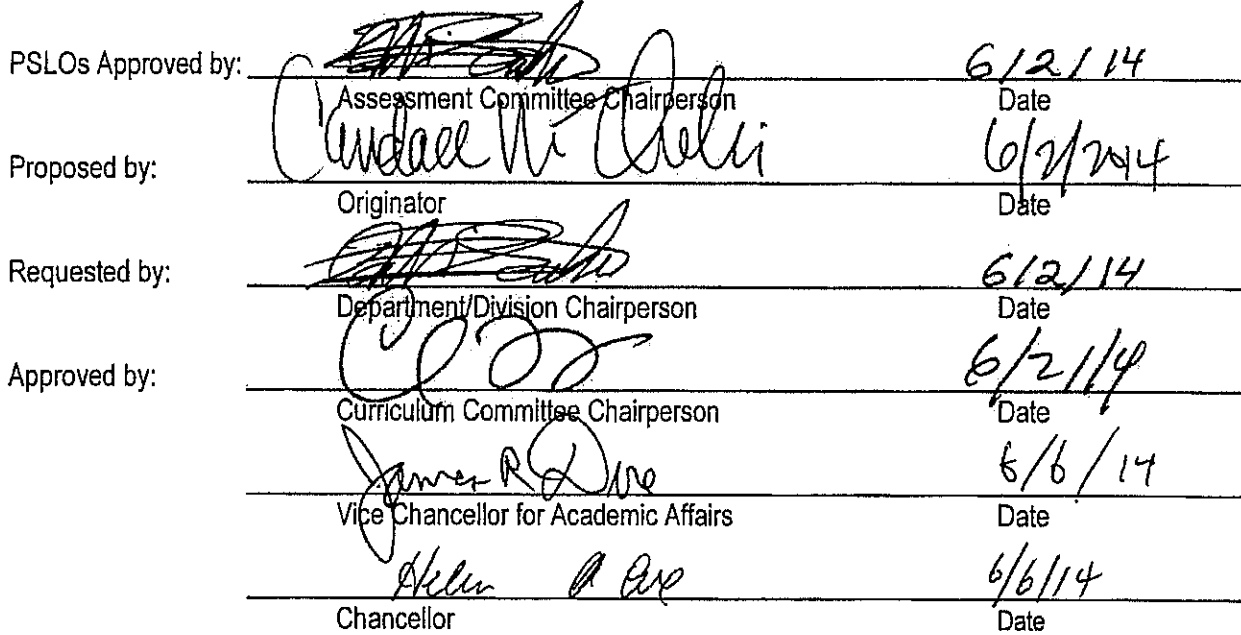 PSLOs Approved by: 6/2/14
Assessment Committee Chairperson Date
Proposed by: 6/2/2014
Originator Date
Requested by: 6/2/14
Department/Division Chairperson Date
Approved by: 6/2/14
Curriculum Committee Chairperson Date
James R 6/6/14
Vice Chancellor for Academic Affairs Date
Helen 6/6/14
Chancellor Date